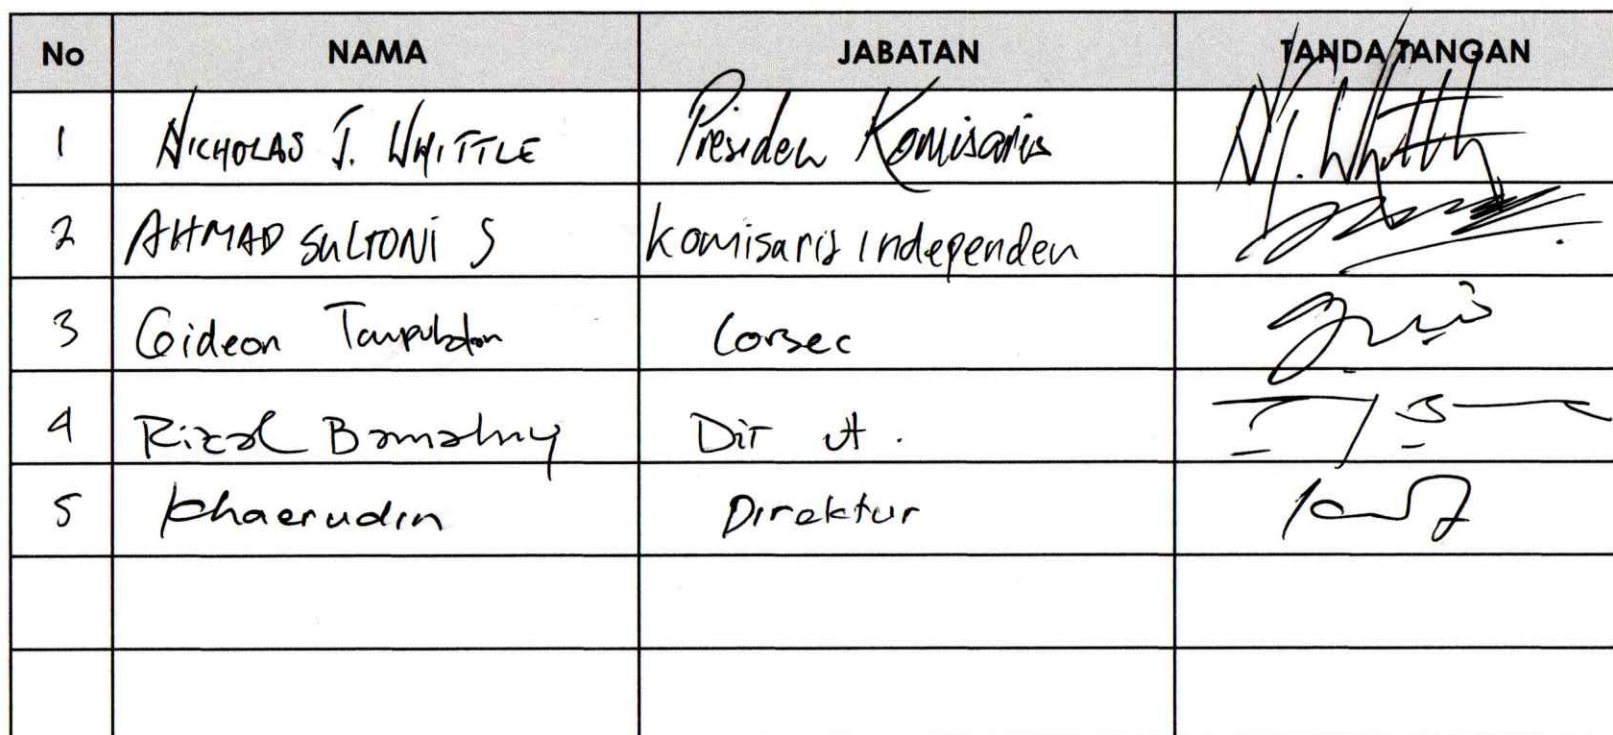 No NAMA JABATAN TANDA TANGAN
1 NICHOLAS J. WHITTLE Presiden Komisaris
2 AHMAD SULTONI S Komisaris Independen
3 Gideon Corsec
4 Rizal Dir ut.
5 Khaerudin Direktur